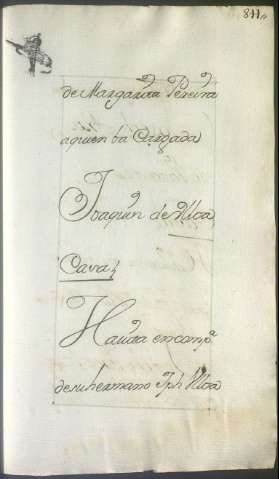 811
de Margarita Pereira
aquien ba Cargada
Joaquin de Ulloa
Cava
Havita en comp.ª
de su hermano Jph Ulloa